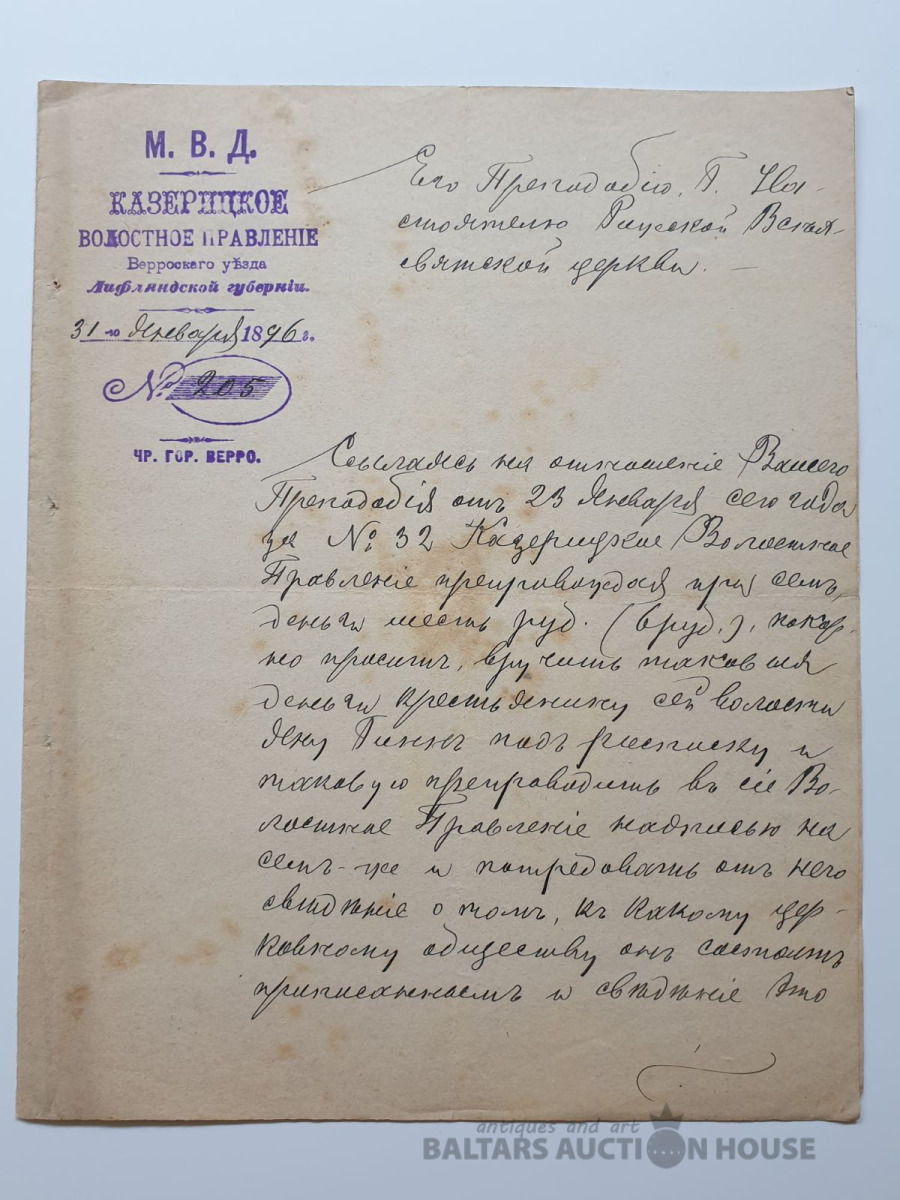 М. В. Д.
КАЗЕРИЦКОЕ
ВОЛОСТНОЕ ПРАВЛЕНІЕ
Верроскаго уѣзда
Лифляндской губерніи.
31-го Января 1896 г.
№ 205
ЧР. ГОР. ВЕРРО.
Его Преподобію, Г. На-
стоятелю Всѣхъ-
святской церкви.
Ссылаясь на отношеніе Вашего
Преподобія отъ 23 Января сего года
за № 32 Казерицкое Волостное
Правленіе препровождая при семъ,
деньги шесть руб. (6 руб.), покор-
но проситъ, вручить таковыя
деньги крестьянину сей волости
Яну под росписку и
таковую препроводить въ сіе Во-
лостное Правленіе надписью на
семъ-же и потребовать отъ него
свѣдѣніе о томъ, къ какому цер-
ковному обществу онъ состоитъ
приписаннымъ и свѣдѣніе это
antiques and art
BALTARS AUCTION HOUSE